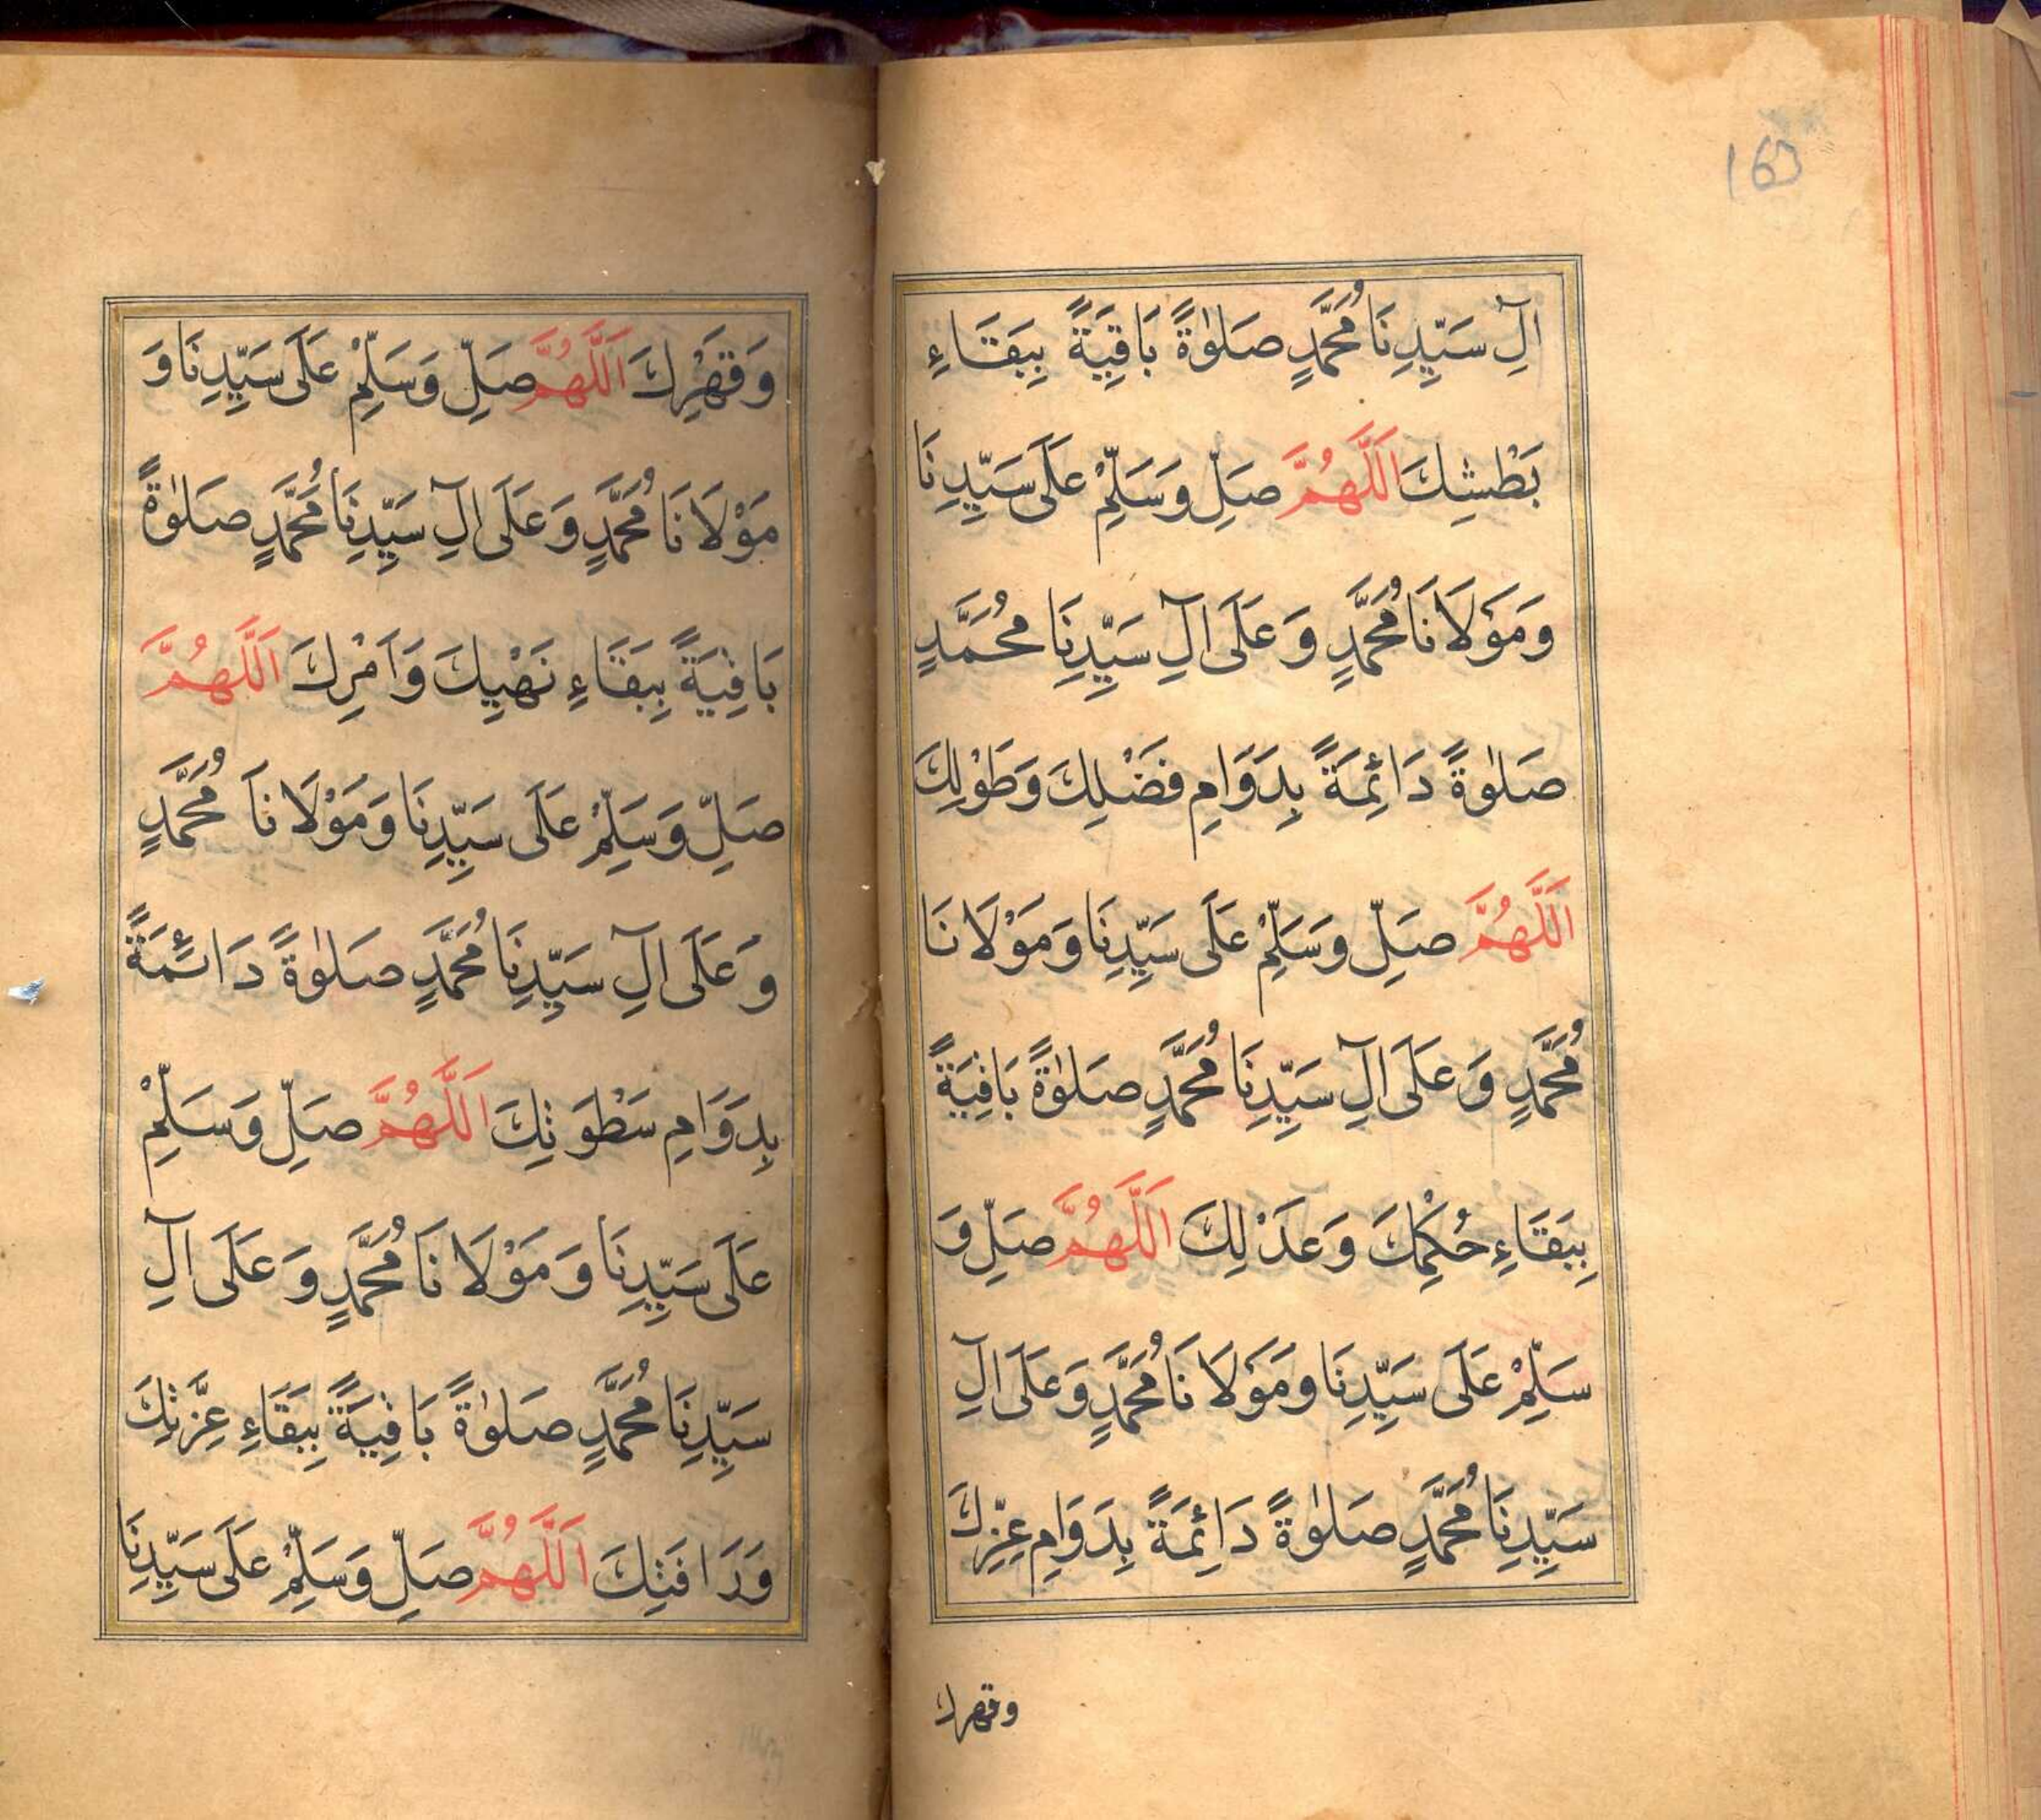 160
اٰلِ سَيِّدِنَا مُحَمَّدٍ صَلٰوةً بَاقِيَةً بِبَقَاءِ
بَطْشِكَ اَللّٰهُمَّ صَلِّ وَسَلِّمْ عَلَى سَيِّدِنَا
وَمَوْلَانَا مُحَمَّدٍ وَعَلَى اٰلِ سَيِّدِنَا مُحَمَّدٍ
صَلٰوةً دَائِمَةً بِدَوَامِ فَضْلِكَ وَطَوْلِكَ
اَللّٰهُمَّ صَلِّ وَسَلِّمْ عَلَى سَيِّدِنَا وَمَوْلَانَا
مُحَمَّدٍ وَعَلَى اٰلِ سَيِّدِنَا مُحَمَّدٍ صَلٰوةً بَاقِيَةً
بِبَقَاءِ حُكْمِكَ وَعَدْلِكَ اَللّٰهُمَّ صَلِّ وَ
سَلِّمْ عَلَى سَيِّدِنَا وَمَوْلَانَا مُحَمَّدٍ وَعَلَى اٰلِ
سَيِّدِنَا مُحَمَّدٍ صَلٰوةً دَائِمَةً بِدَوَامِ عِزِّكَ
وقهرك
وَقَهْرِكَ اَللّٰهُمَّ صَلِّ وَسَلِّمْ عَلَى سَيِّدِنَا وَ
مَوْلَانَا مُحَمَّدٍ وَعَلَى اٰلِ سَيِّدِنَا مُحَمَّدٍ صَلٰوةً
بَاقِيَةً بِبَقَاءِ نَهْيِكَ وَاَمْرِكَ اَللّٰهُمَّ
صَلِّ وَسَلِّمْ عَلَى سَيِّدِنَا وَمَوْلَانَا مُحَمَّدٍ
وَعَلَى اٰلِ سَيِّدِنَا مُحَمَّدٍ صَلٰوةً دَائِمَةً
بِدَوَامِ سَطْوَتِكَ اَللّٰهُمَّ صَلِّ وَسَلِّمْ
عَلَى سَيِّدِنَا وَمَوْلَانَا مُحَمَّدٍ وَعَلَى اٰلِ
سَيِّدِنَا مُحَمَّدٍ صَلٰوةً بَاقِيَةً بِبَقَاءِ عِزَّتِكَ
وَرَافَتِكَ اَللّٰهُمَّ صَلِّ وَسَلِّمْ عَلَى سَيِّدِنَا